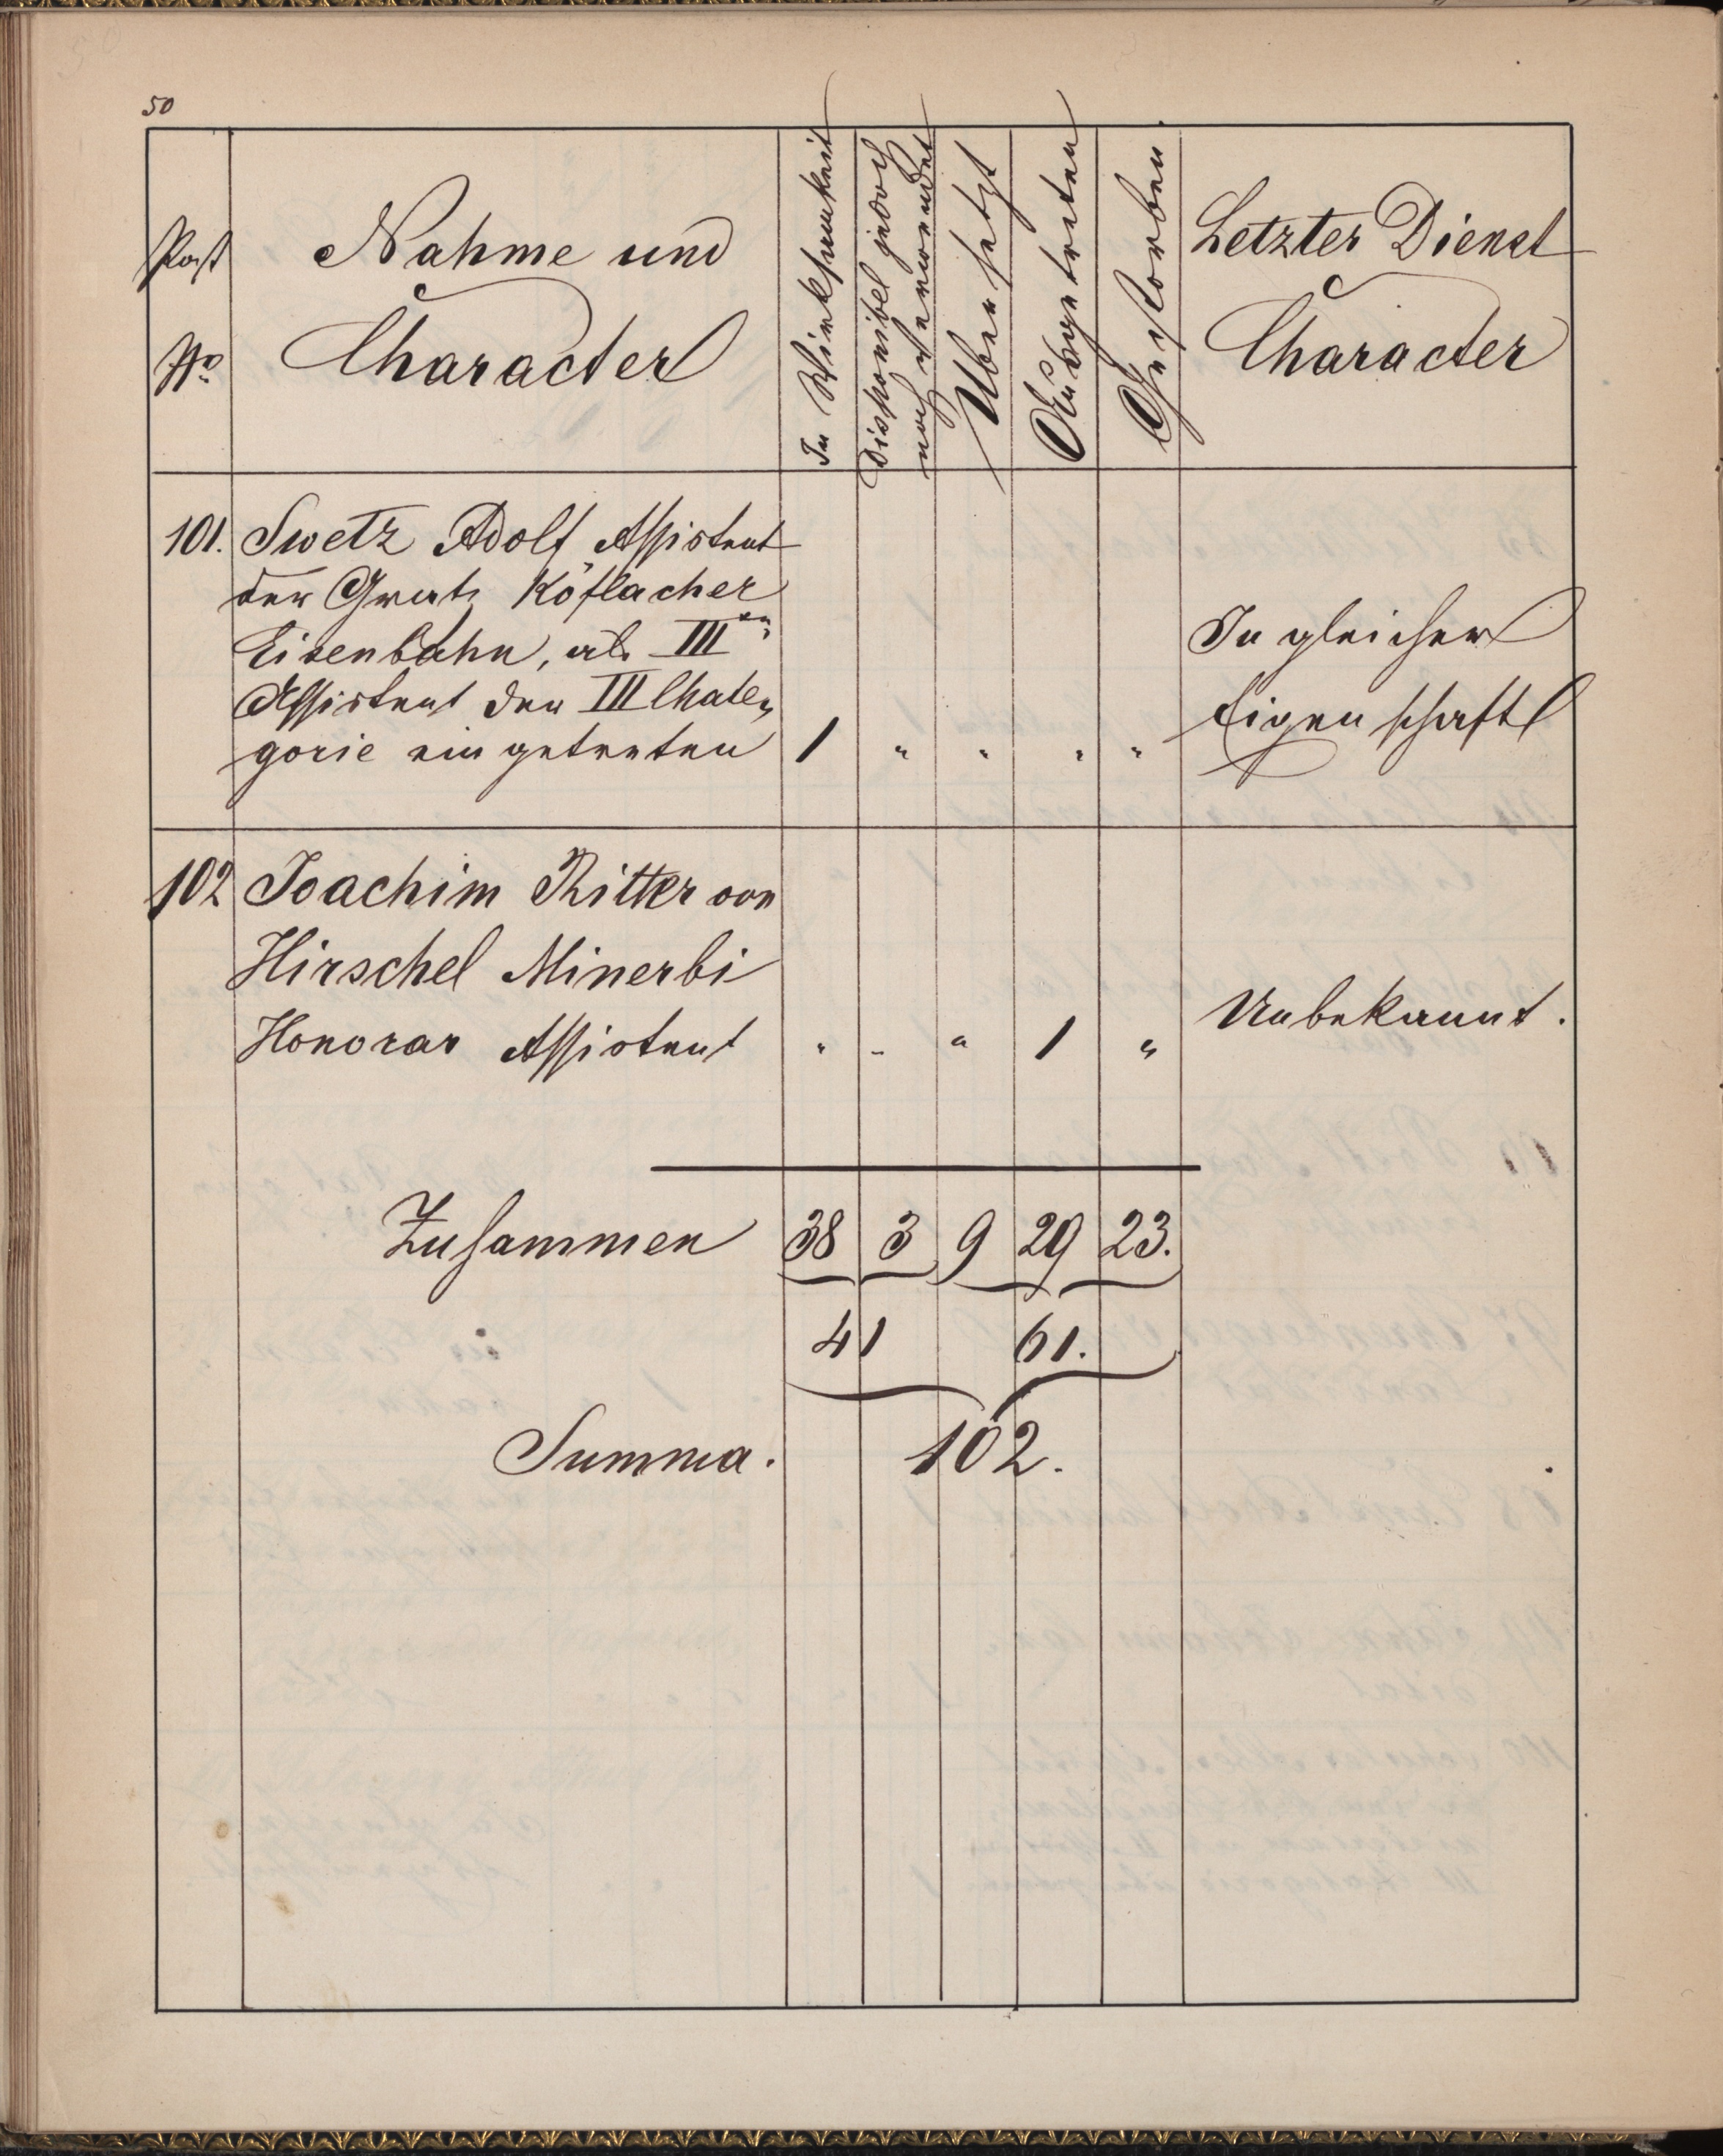 50
Post
No
Nahme und
Character
In Wirksamkeit
Disponibel jedoch
noch verwendet
Übersetzt
Ausgetreten
Gestorben
Letzter Dienst
Character
101. Swetz Adolf Assistent
der Gratz Köflacher
Eisenbahn, als IIIter
Assistent der III Chate,
gorie eingetreten 1 " " " "
In gleicher
Eigenschaft
102 Joachim Ritter von
Hirschel Minerbi
Honorar Assistent " " " 1 "
Unbekannt.
Zusammen 38 3 9 29 23.
41 61.
Summa. 102.